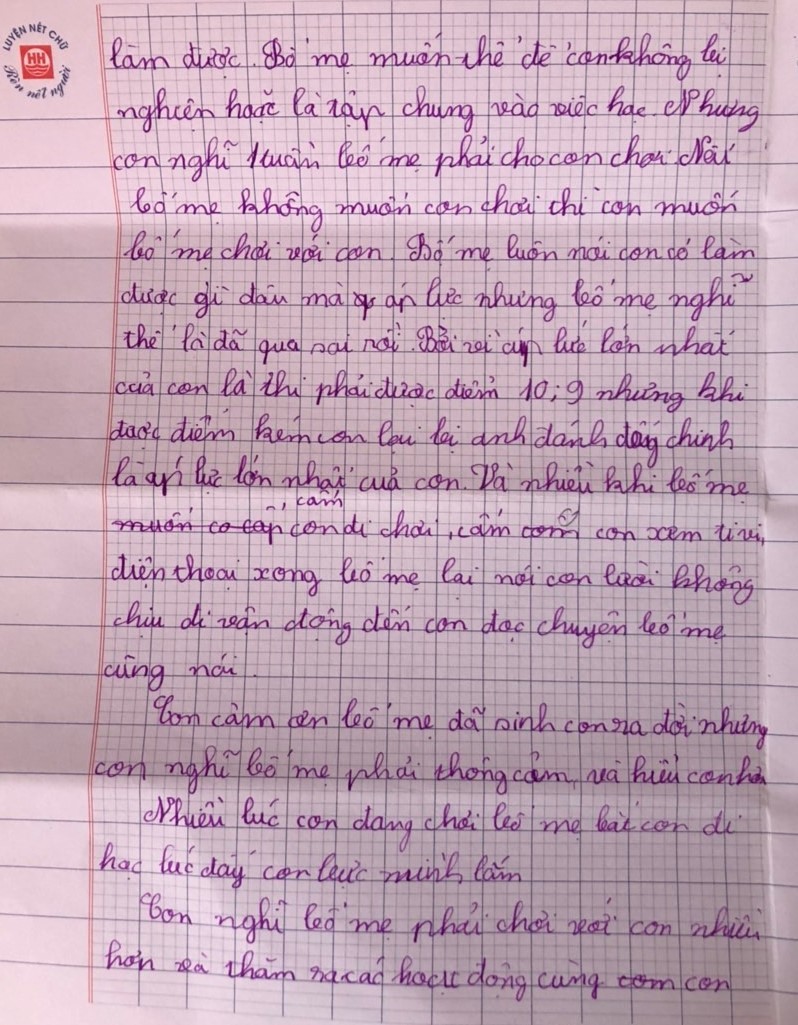 LUYỆN NÉT CHỮ
HH
Rèn nét người
làm được. Bố mẹ muốn thế để con không bị
nghiện hoặc là tập chung vào việc học. Nhưng
con nghĩ 1 tuần bố mẹ phải cho con chơi. Nếu
bố mẹ không muốn con chơi thì con muốn
bố mẹ chơi với con. Bố mẹ luôn nói con có làm
được gì đâu mà áp lực nhưng bố mẹ nghĩ
thế là đã quá sai rồi. Bởi vì áp lực lớn nhất
của con là thi phải được điểm 10; 9 nhưng khi
được điểm kém con lại bị anh đánh đấy chính
là áp lực lớn nhất của con. Và nhiều khi bố mẹ
muốn co cấp cấm con đi chơi, cấm con xem ti vi,
điện thoại xong bố mẹ lại nói con lười không
chịu đi vận động đến con đọc chuyện bố mẹ
cũng nói.
Con cảm ơn bố mẹ đã sinh con ra đời nhưng
con nghĩ bố mẹ phải thông cảm, và hiểu con hơn
Nhiều lúc con đang chơi bố mẹ bắt con đi
học lúc đấy con bực mình lắm
Con nghĩ bố mẹ phải chơi với con nhiều
hơn và thăm ra các hoạt động cùng com con